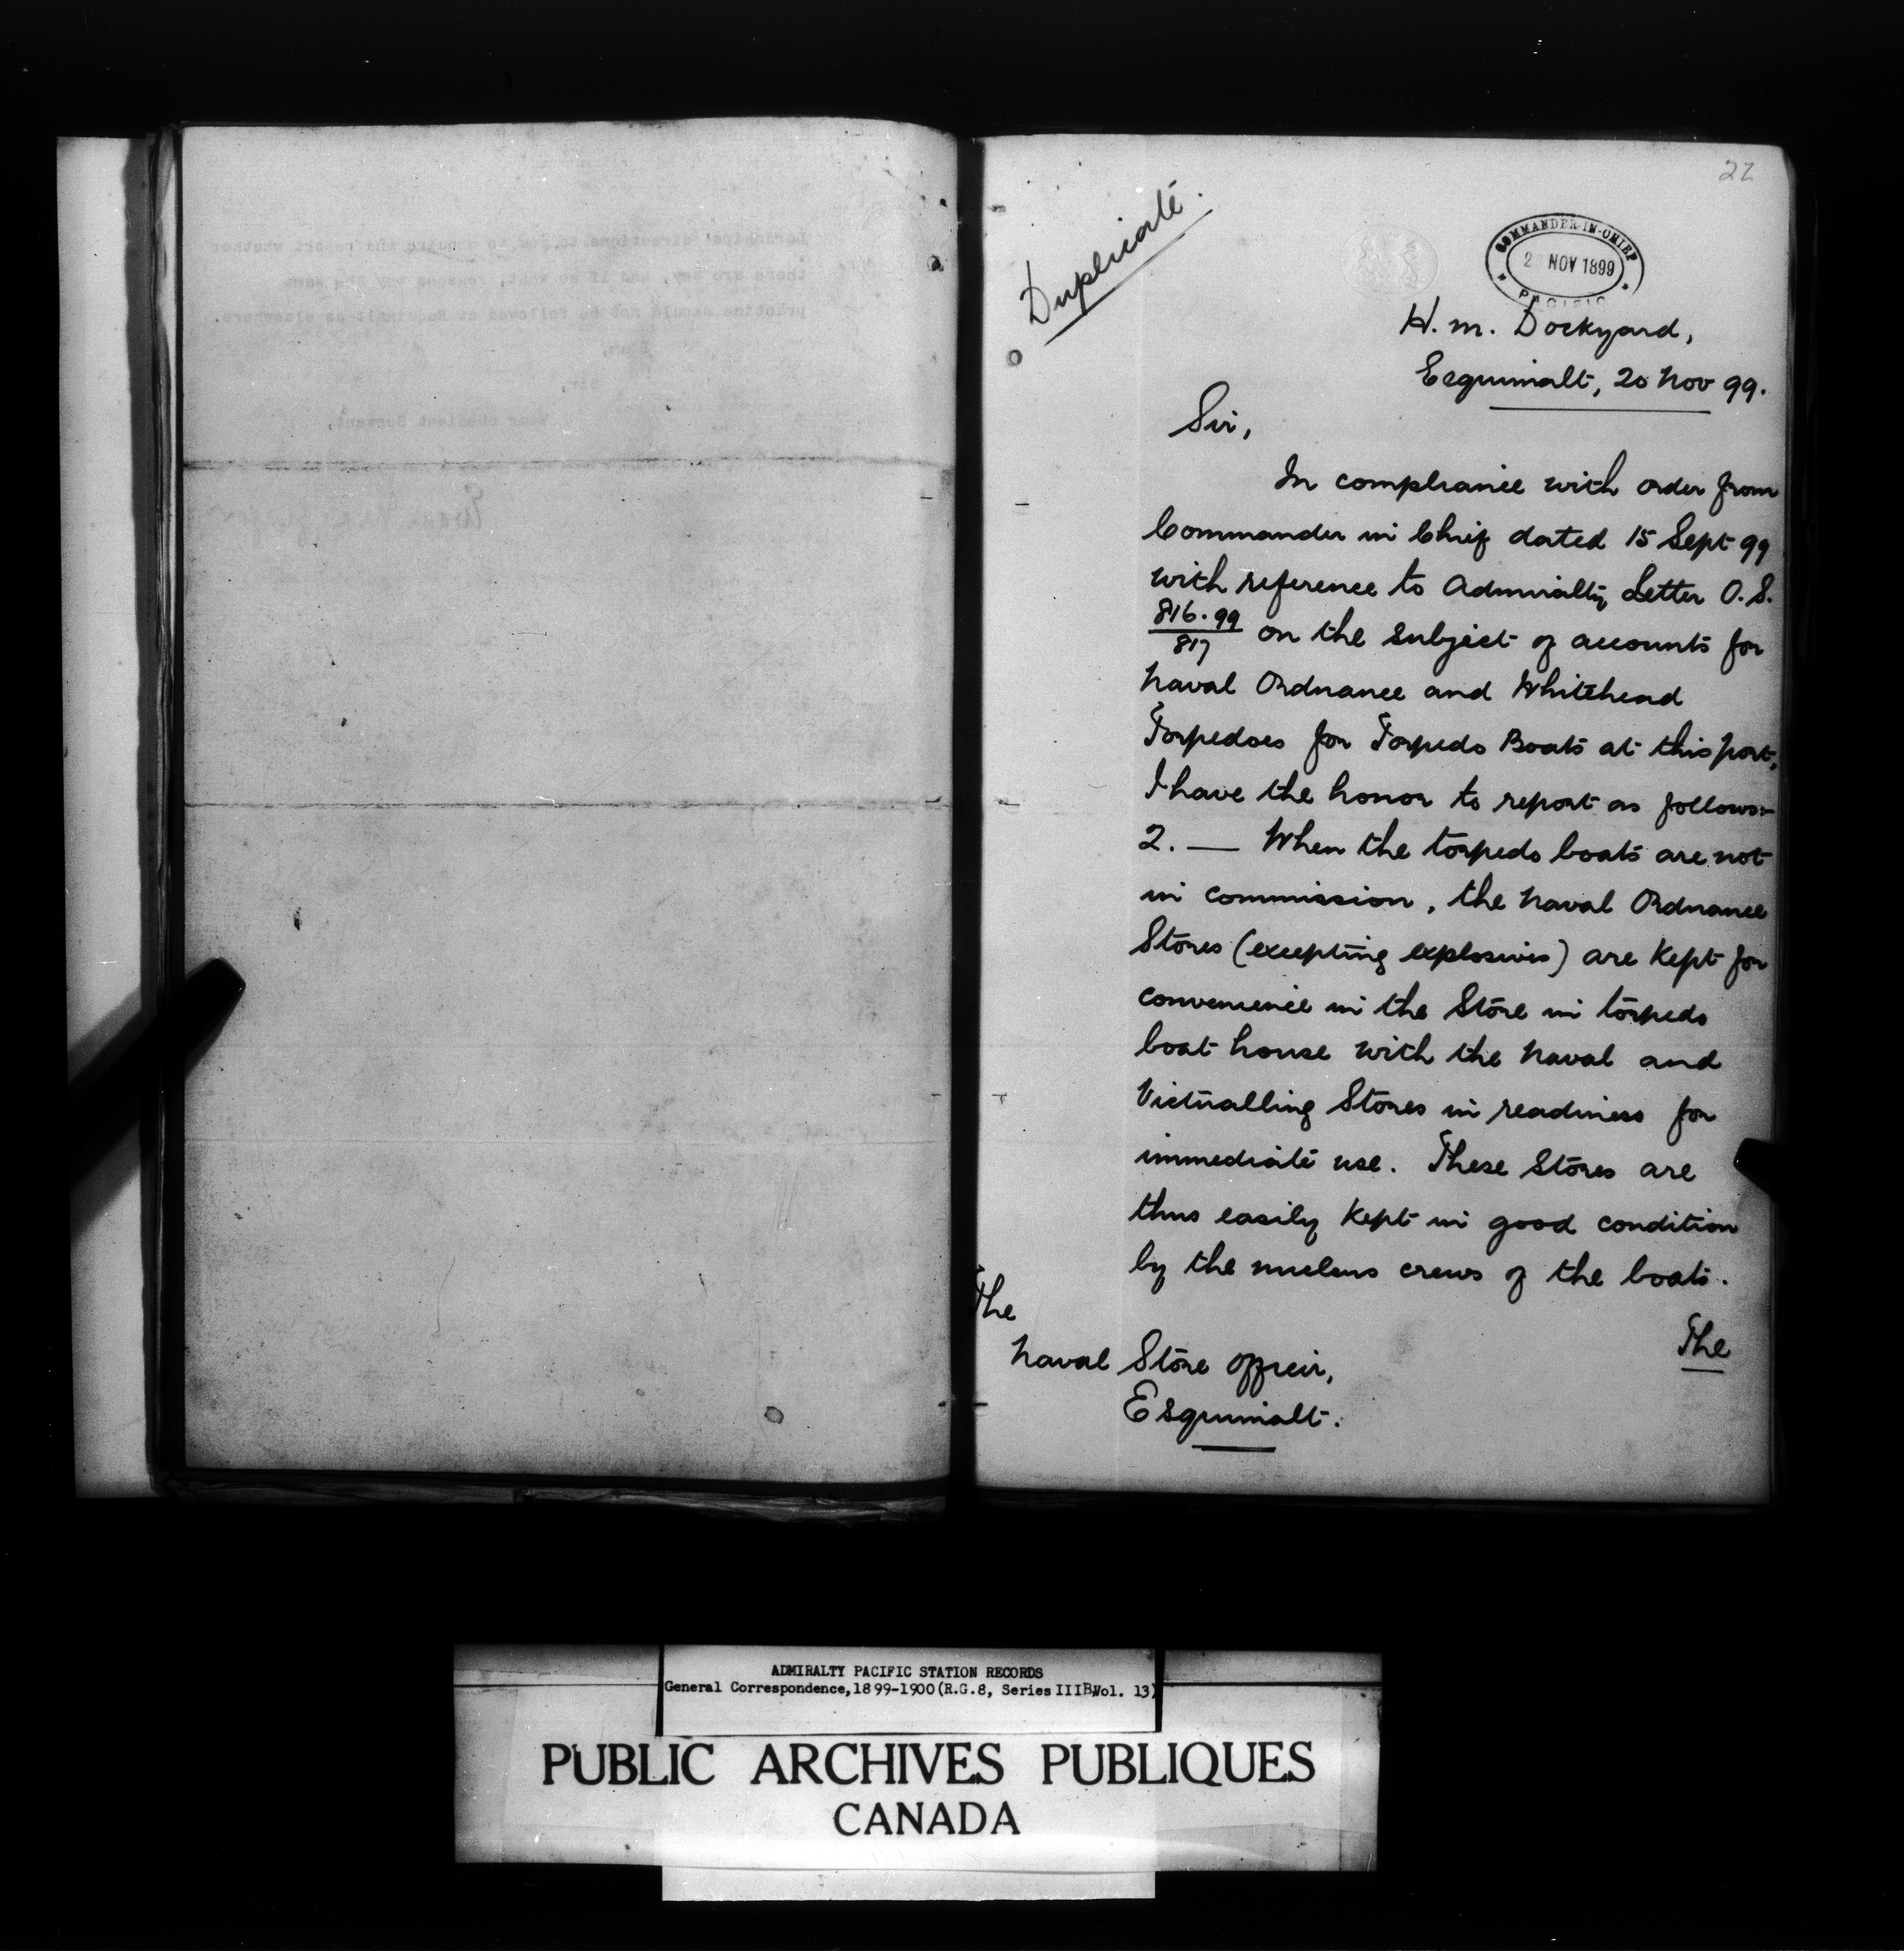 22
Duplicate.
COMMANDER-IN-CHIEF
NOV 1899
PACIFIC
H.M. Dockyard,
Esquimalt, 20 Nov 99.
Sir,
In compliance with order from
Commander in Chief dated 15 Sept 99
with reference to Admiralty Letter O.S.
816.99
817
on the subject of accounts for
Naval Ordnance and Whitehead
Torpedoes for Torpedo Boats at this port,
I have the honor to report as follows:-
2. — When the torpedo boats are not
in commission, the Naval Ordnance
Stores (excepting explosives) are kept for
convenience in the Store in torpedo
boat house with the Naval and
Victualling Stores in readiness for
immediate use. These Stores are
thus easily kept in good condition
by the nucleus crews of the boats.
The
The
Naval Store Officer,
Esquimalt.
ADMIRALTY PACIFIC STATION RECORDS
General Correspondence, 1899-1900 (R.G.8, Series IIIB, Vol. 13)
PUBLIC ARCHIVES PUBLIQUES
CANADA